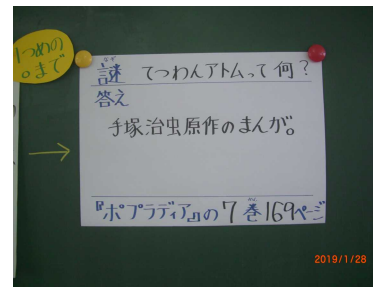 1つめの
。まで
謎 てつわんアトムって何？
答え
手塚治虫原作のまんが。
『ポプラディア』の7巻169ページ
2019/1/28